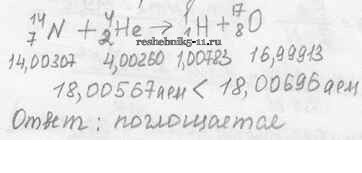 ¹⁴₇N + ⁴₂He → ¹₁H + ¹⁷₈O
reshebnik5-11.ru
14,00307 4,00260 1,00783 16,99913
18,00567аем < 18,00696аем
Ответ: поглощается